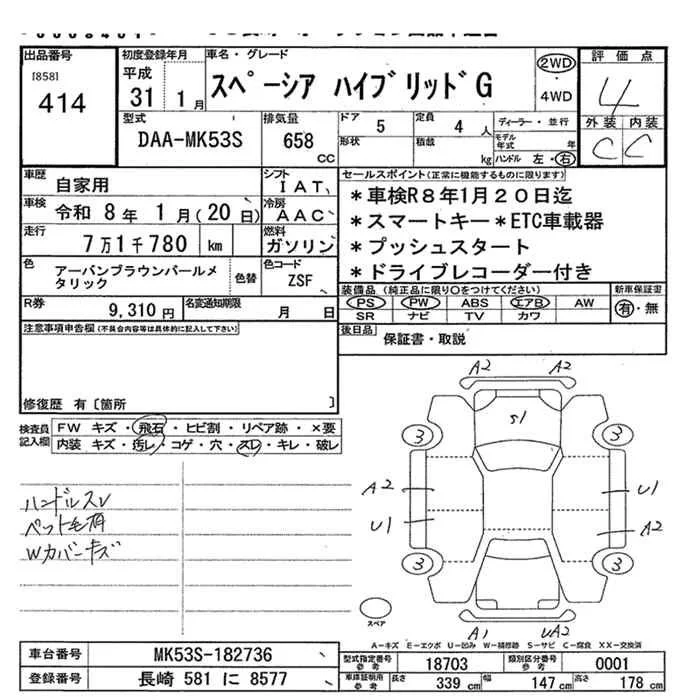 出品番号
[858]
414
初度登録年月
平成
31 1月
車名・グレード
スペーシア ハイブリッドG
2WD
4WD
評価点
4
外装 内装
C C
型式
DAA-MK53S
排気量
658 CC
ドア
5
定員
4 人
形状
積載
kg
ディーラー・並行
モデル年式 年
ハンドル 左・右
車歴
自家用
シフト
IAT
車検
令和 8年 1月(20日)
冷房
AAC
走行
7万1千780 km
燃料
ガソリン
色
アーバンブラウンパールメタリック
色替
色コード
ZSF
R券
9,310円
名変通知期限
月 日
セールスポイント(正常に機能するものに限ります)
*車検R8年1月20日迄
*スマートキー*ETC車載器
*プッシュスタート
*ドライブレコーダー付き
装備品(純正品に限り○をつけてください)
新車保証書
PS PW ABS エアB AW
SR ナビ TV カワ
有・無
後日品
保証書・取説
注意事項申告欄(不具合内容等は具体的に記入して下さい)
修復歴 有〔箇所 〕
検査員記入欄
FW キズ・飛石・ヒビ割・リペア跡・×要
内装 キズ・汚レ・コゲ・穴・スレ・キレ・破レ
ハンドルスレ
ペット毛有
Wカバーキズ
A2 A2
S1
3 3
A2 U1
U1 A2
3 3
A1 UA2
スペア
A-キズ E-エクボ U-凹み W-補修跡 S-サビ C-腐食 XX-交換済
車台番号
MK53S-182736
登録番号
長崎 581 に 8577
型式指定番号参考
18703
類別区分番号参考
0001
車庫証明用参考
長さ 339 cm
幅 147 cm
高さ 178 cm